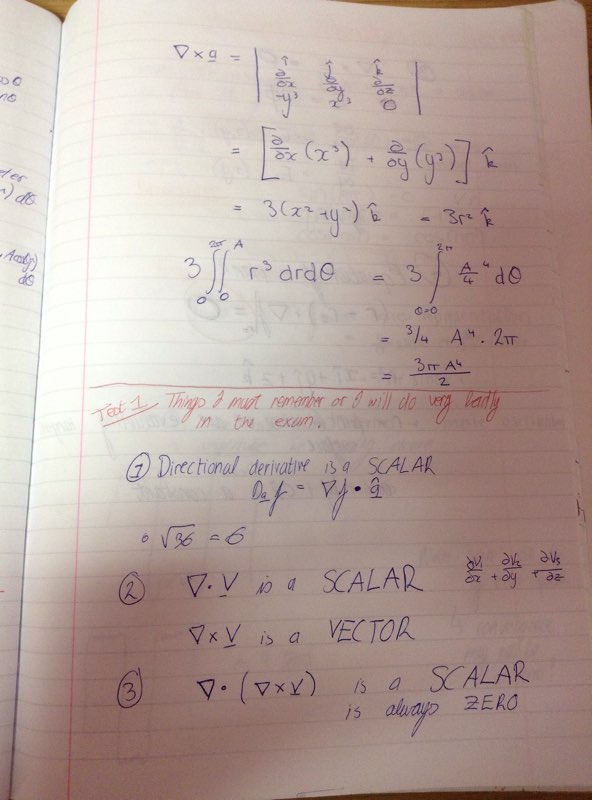 ∇ × a = | î ĵ k̂ |
| ∂/∂x ∂/∂y ∂/∂z |
| -y³ x³ 0 |
= [∂/∂x (x³) + ∂/∂y (y³)] k̂
= 3(x² + y²) k̂ = 3r² k̂
3 ∫₀^2π ∫₀^A r³ dr dθ = 3 ∫_θ=0^2π A/4 ⁴ dθ
= 3/4 A⁴ · 2π
= 3πA⁴/2
Test 1 Things I must remember or I will do very badly
in the exam.
① Directional derivative is a SCALAR
Dₐf = ∇f • â
∘ √36 = 6
② ∇ · V is a SCALAR ∂V₁/∂x + ∂V₂/∂y + ∂V₃/∂z
∇ × V is a VECTOR
③ ∇ · (∇ × V) is a SCALAR
is always ZERO